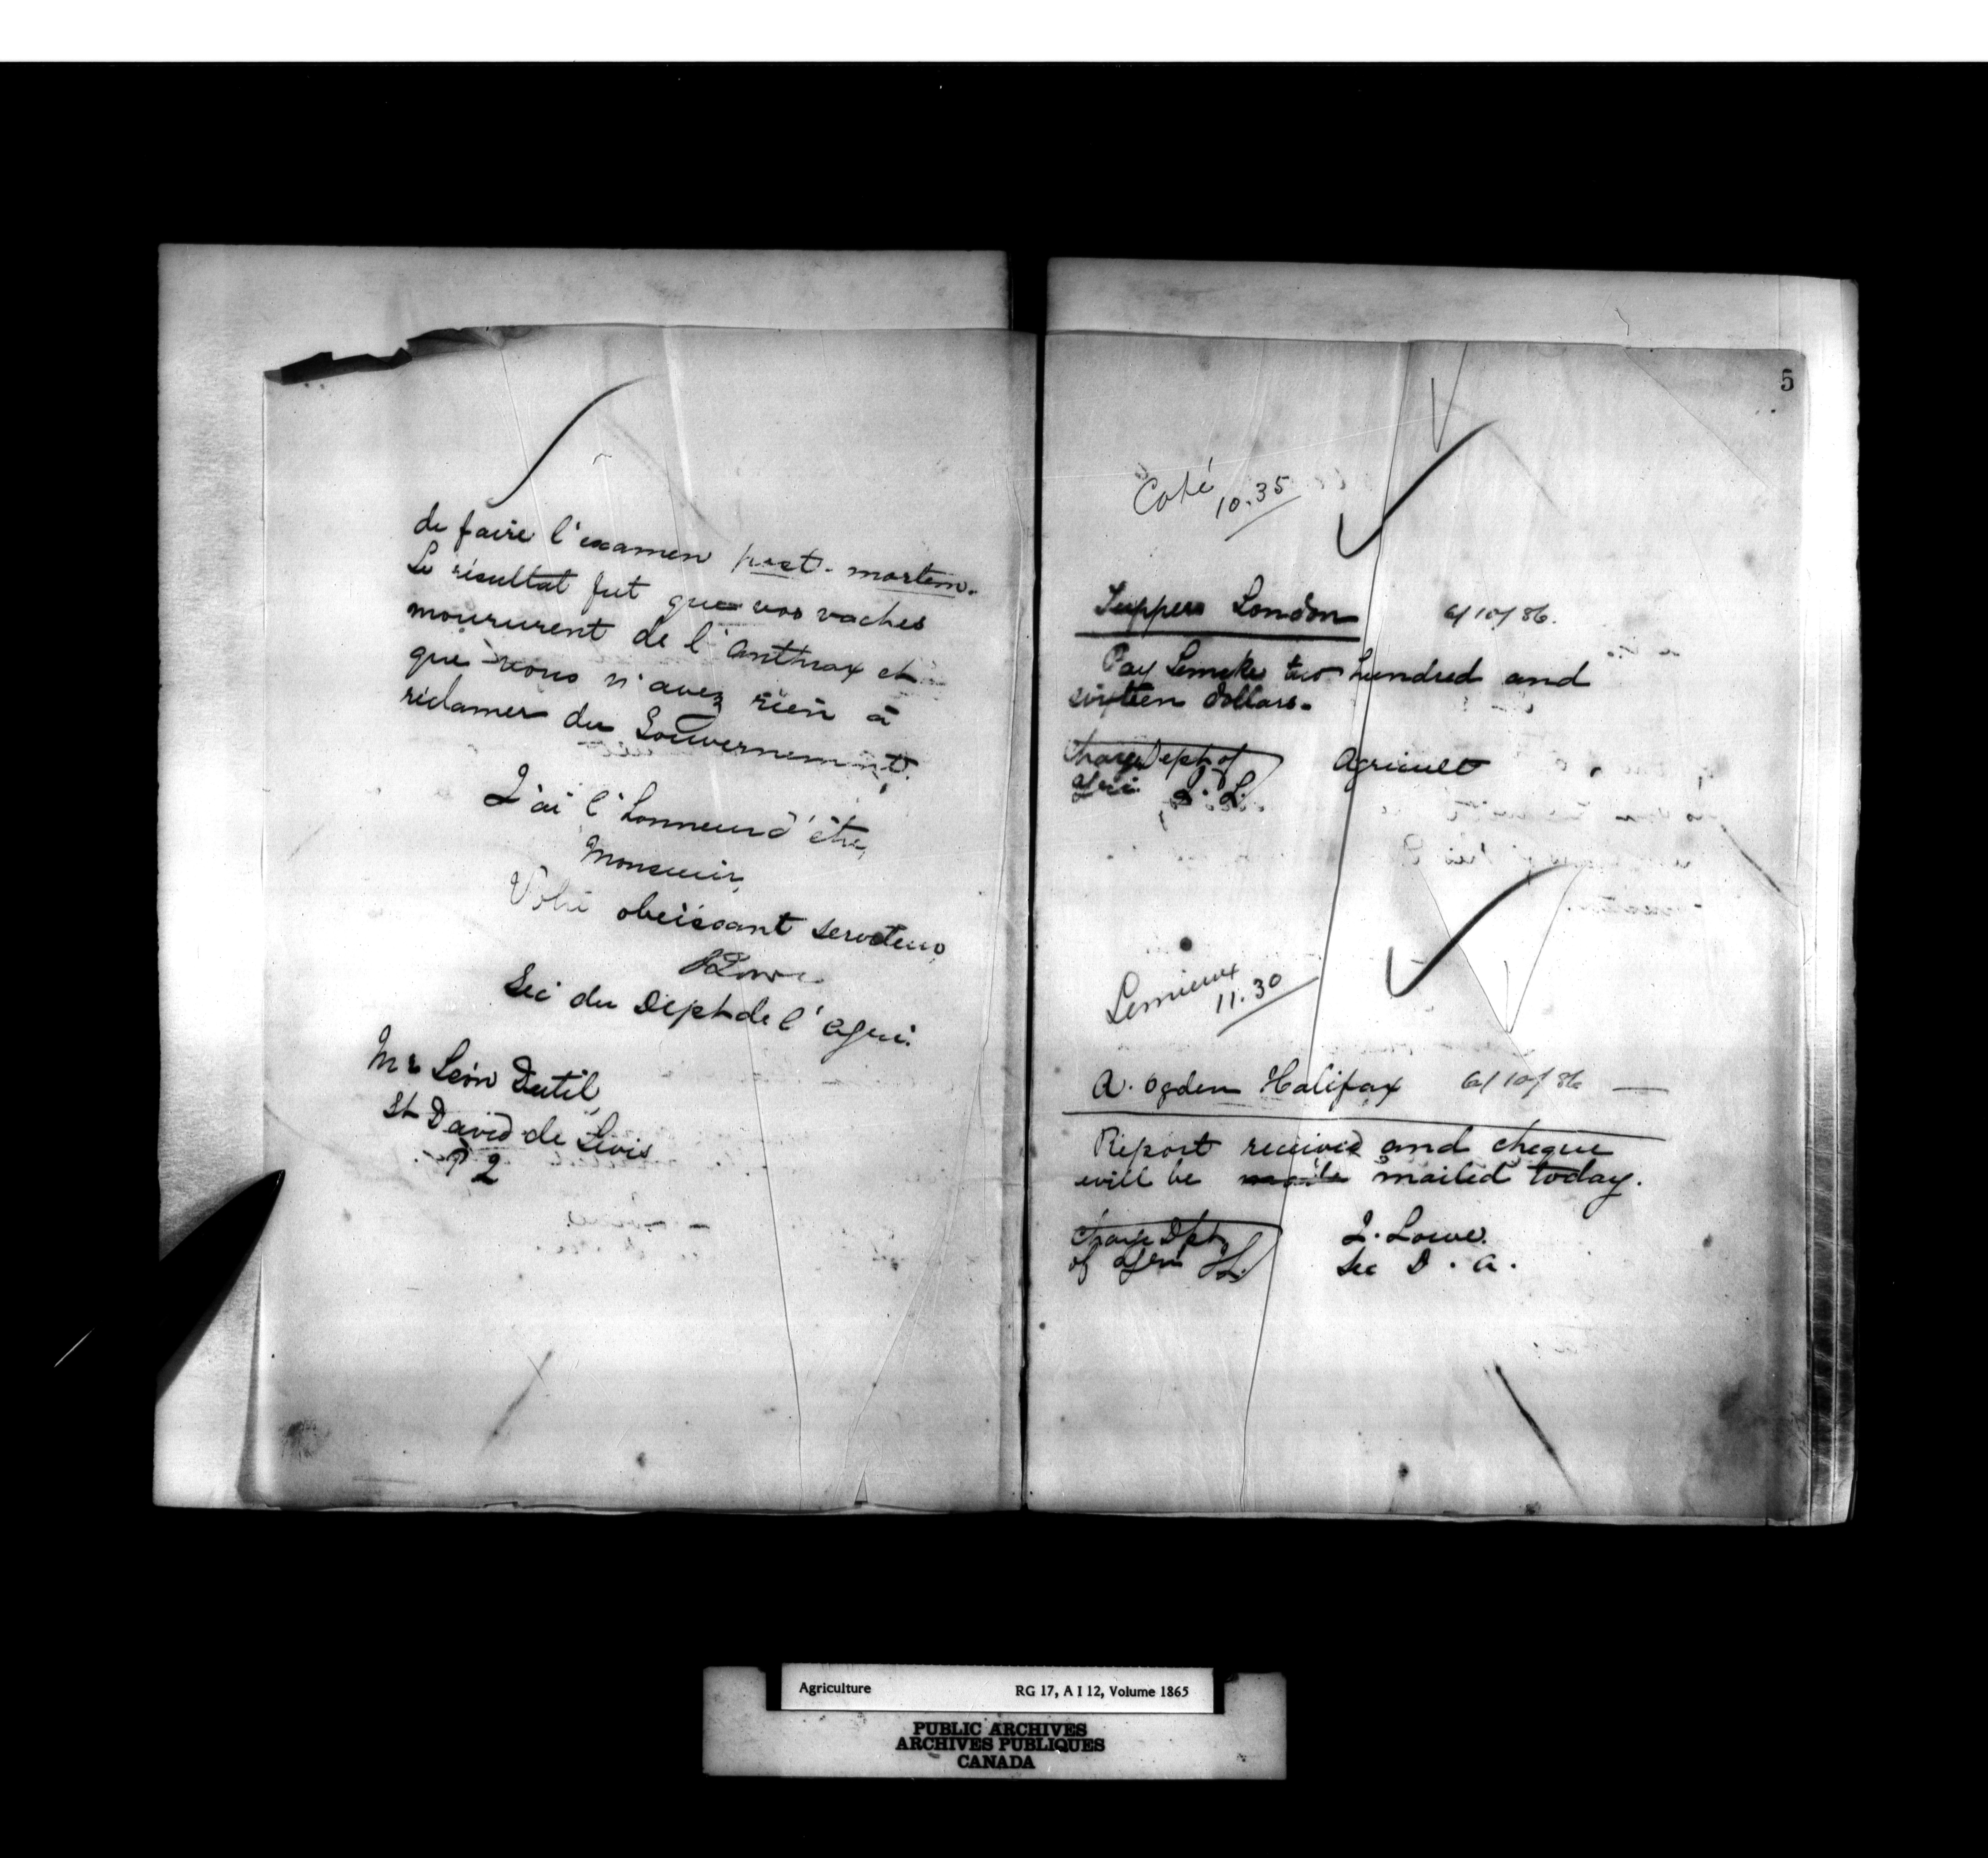 de faire l'examen post-mortem.
Le résultat fut que vos vaches
moururent de l'anthrax et
que vous n'avez rien à
réclamer du Gouvernement.
J'ai l'honneur d'être,
Monsieur,
Votre obeissant serviteur
J Lowe
Sec du Dept de l'Agri.
Mr Léon Dutil,
St David de Levis
P 2
5
Coté
10.35
Tuppers London 6/10/86.
Pay Lemcke two hundred and
sixteen dollars.
Charge Dept of
Agri. J. L. Agricult
Lemieux
11.30
A. Ogden Halifax 6/10/86
Report received and cheque
will be maile mailed today.
Charge Dpt
of Agri JL.
J. Lowe.
Sec D. A.
Agriculture RG 17, A I 12, Volume 1865
PUBLIC ARCHIVES
ARCHIVES PUBLIQUES
CANADA